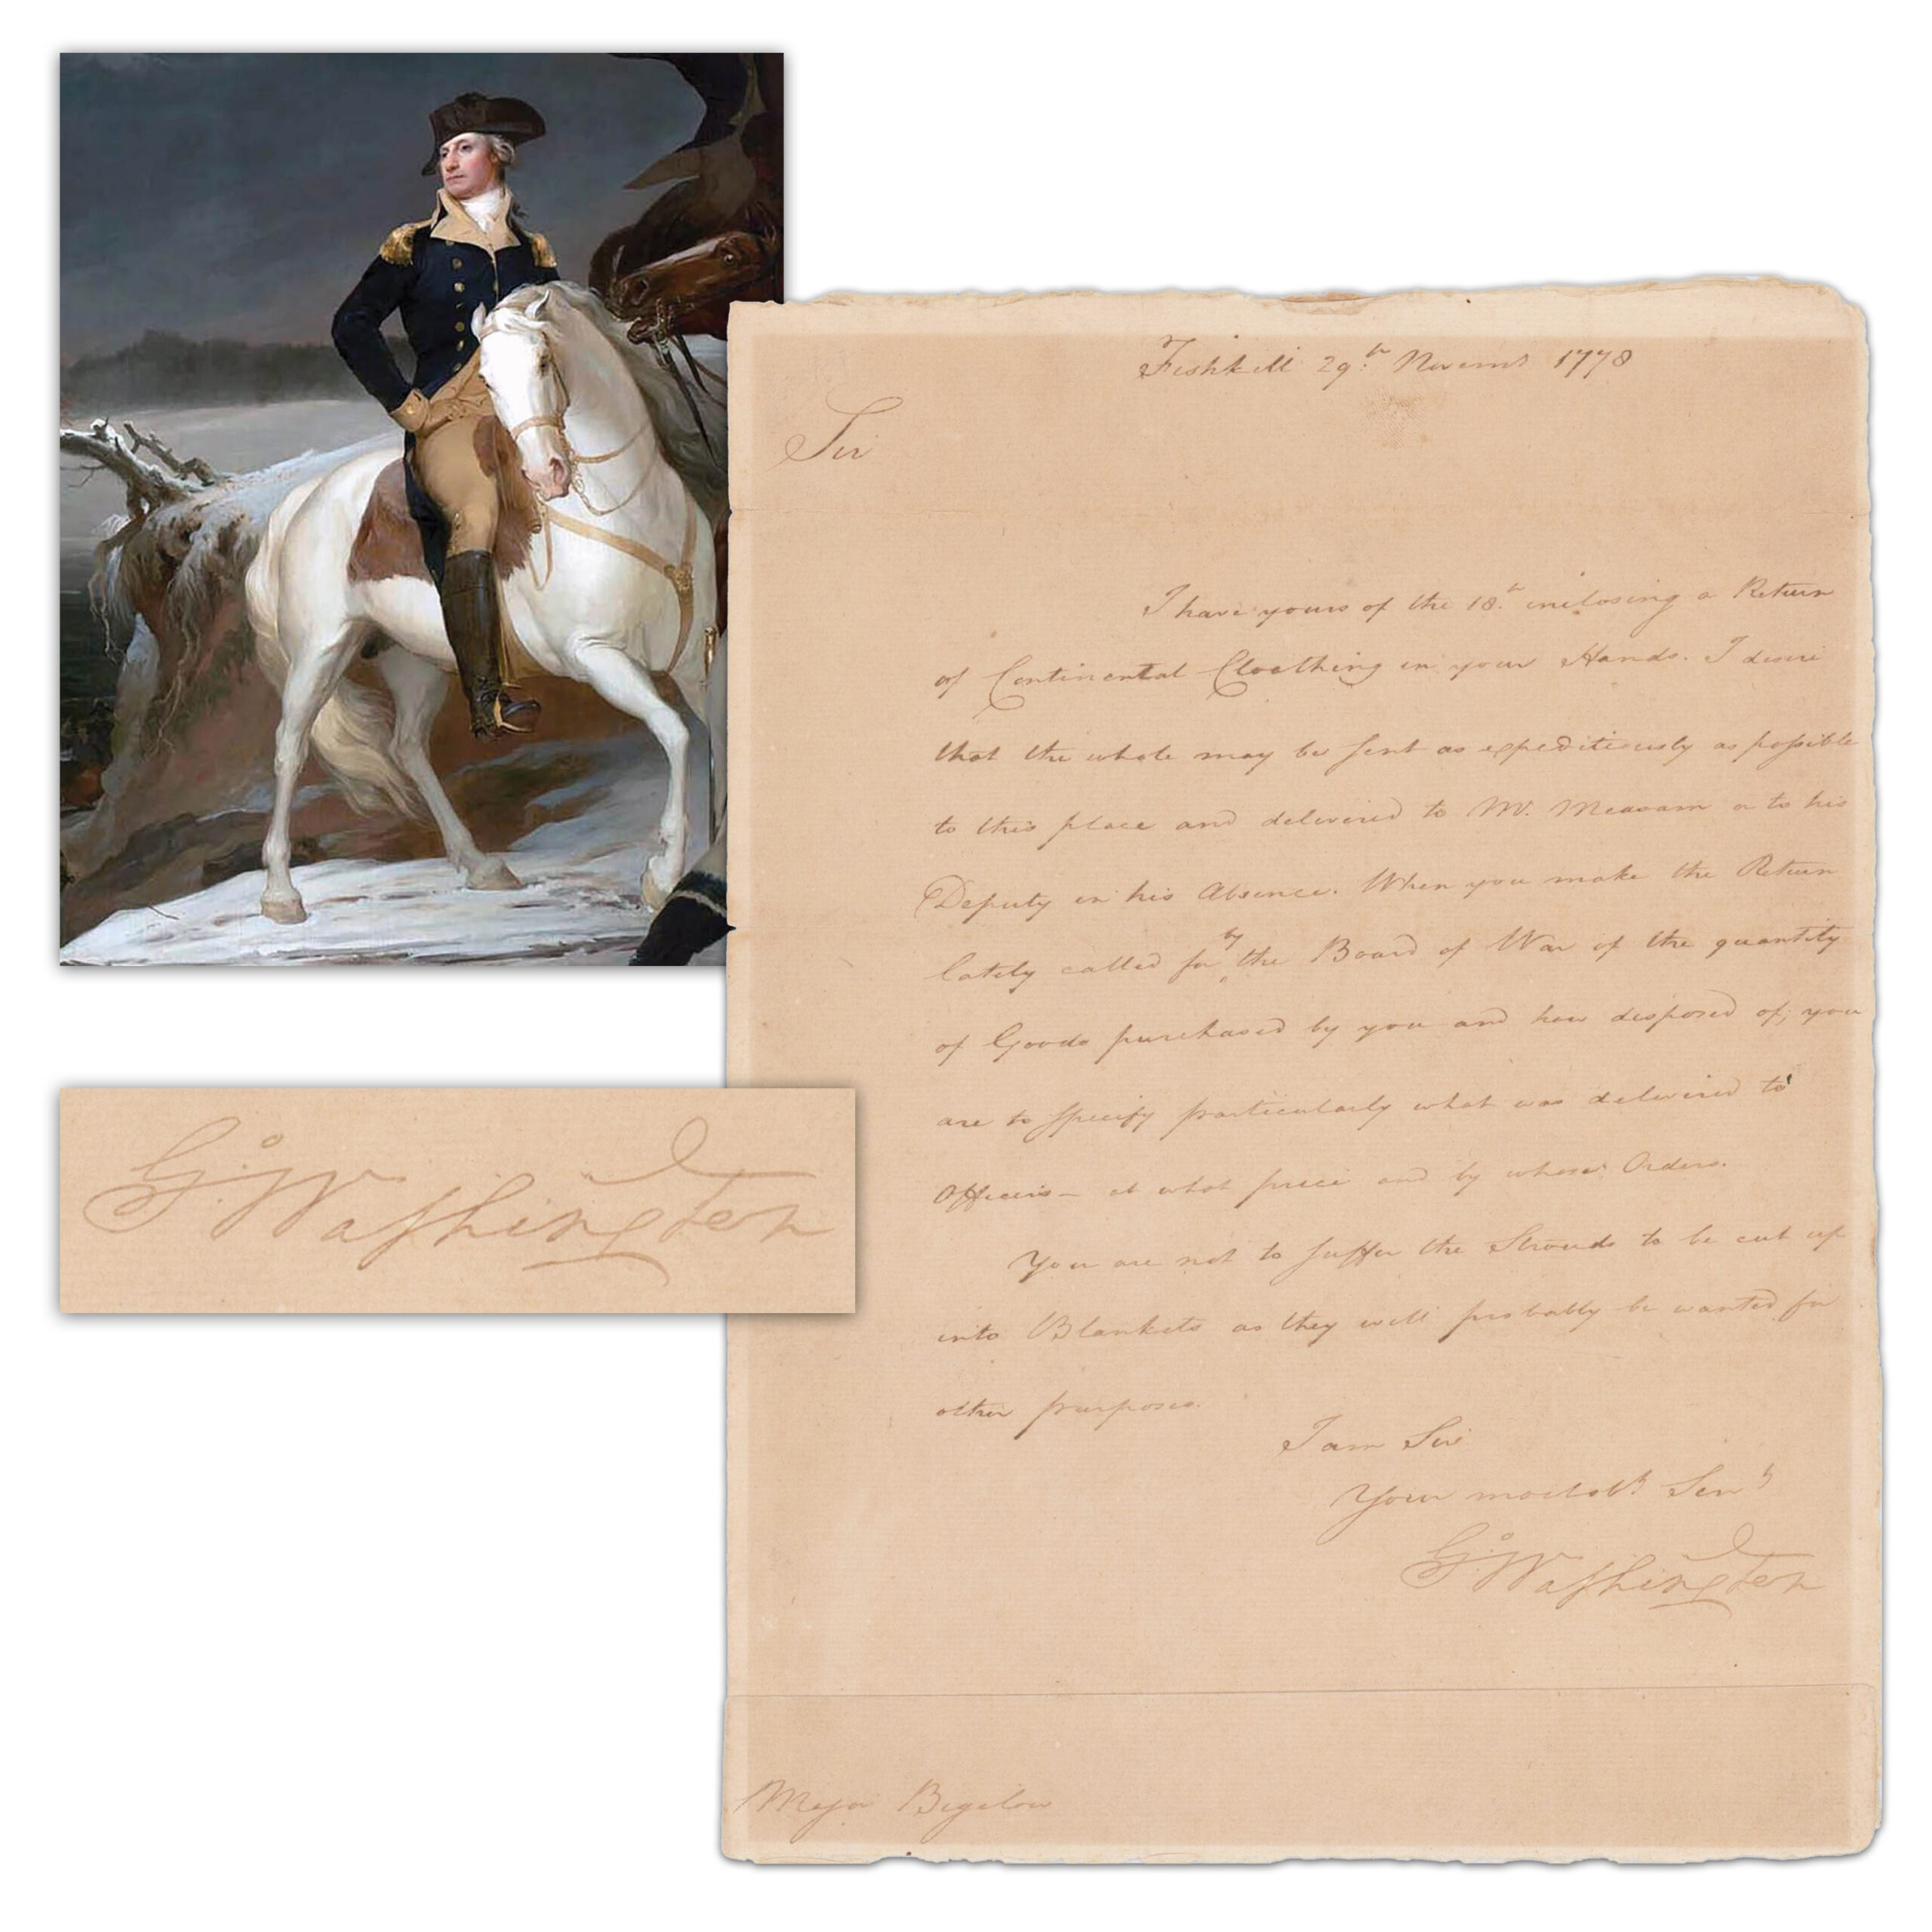 Fishkill 29th Novemr 1778
Sir
I have yours of the 18th inclosing a Return
of Continental Cloathing in your Hands. I desire
that the whole may be sent as expeditiously as possible
to this place and delivered to Mr. Measam or to his
Deputy in his Absence. When you make the Return
lately called for by the Board of War of the quantity
of Goods purchased by you and how disposed of; you
are to specify particularly what was delivered to
Officers - at what price and by whose Orders.
You are not to suffer the Strouds to be cut up
into Blankets as they will probably be wanted for
other purposes.
I am Sir
Your most obt Servt
Go: Washington
Major Bigelow
Go: Washington